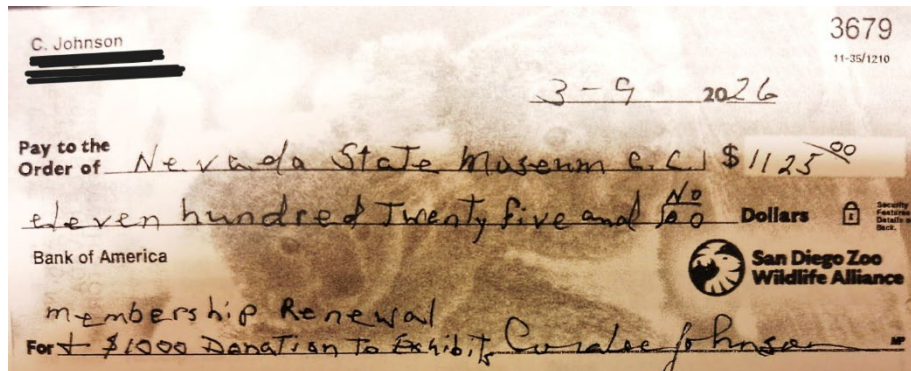 C. Johnson
3679
11-35/1210
3-9 2026
Pay to the
Order of Nevada State Museum C.C. $ 1125 00
eleven hundred Twenty five and No Dollars
Security
Features
Details on
Back.
Bank of America
San Diego Zoo
Wildlife Alliance
membership Renewal
For + $1000 Donation To Exhibits Johnson
MP